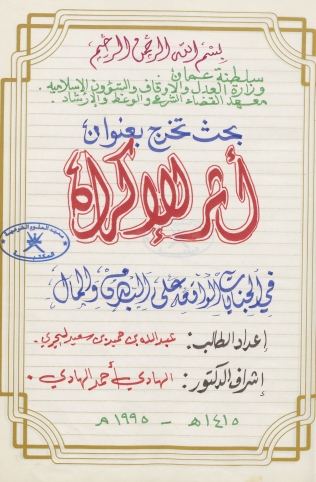 بسم الله الرحمن الرحيم
سلطنة عمان
وزارة العدل والأوقاف والشؤون الإسلامية.
معهد القضاء الشرعي والوعظ والإرشاد.
بحث تخرج بعنوان
أثر الإكراه
في الجنايات الواقعة على البدن والمال
إعداد الطالب: عبدالله بن حميد بن سعيد
إشراف الدكتور: الهادي أحمد الهادي.
١٤١٥هـ - ١٩٩٥م